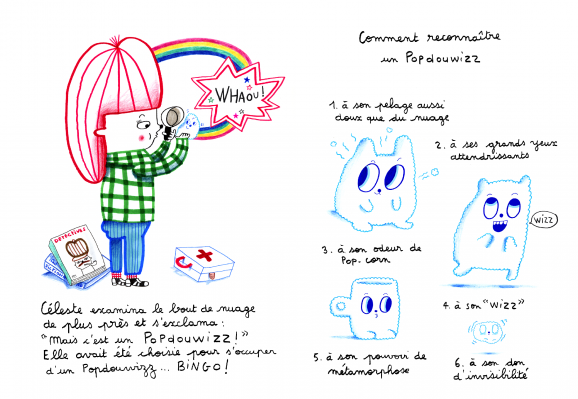 WHAOU!
DÉTECTIVES
Céleste examina le bout de nuage
de plus près et s'exclama :
"Mais c'est un POPDOUWIZZ !"
Elle avait été choisie pour s'occuper
d'un Popdouwizz... BINGO !
Comment reconnaître
un Popdouwizz
1. à son pelage aussi
doux que du nuage
2. à ses grands yeux
attendrissants
wizz
3. à son odeur de
Pop-corn
4. à son "wizz"
5. à son pouvoir de
métamorphose
6. à son don
d'invisibilité